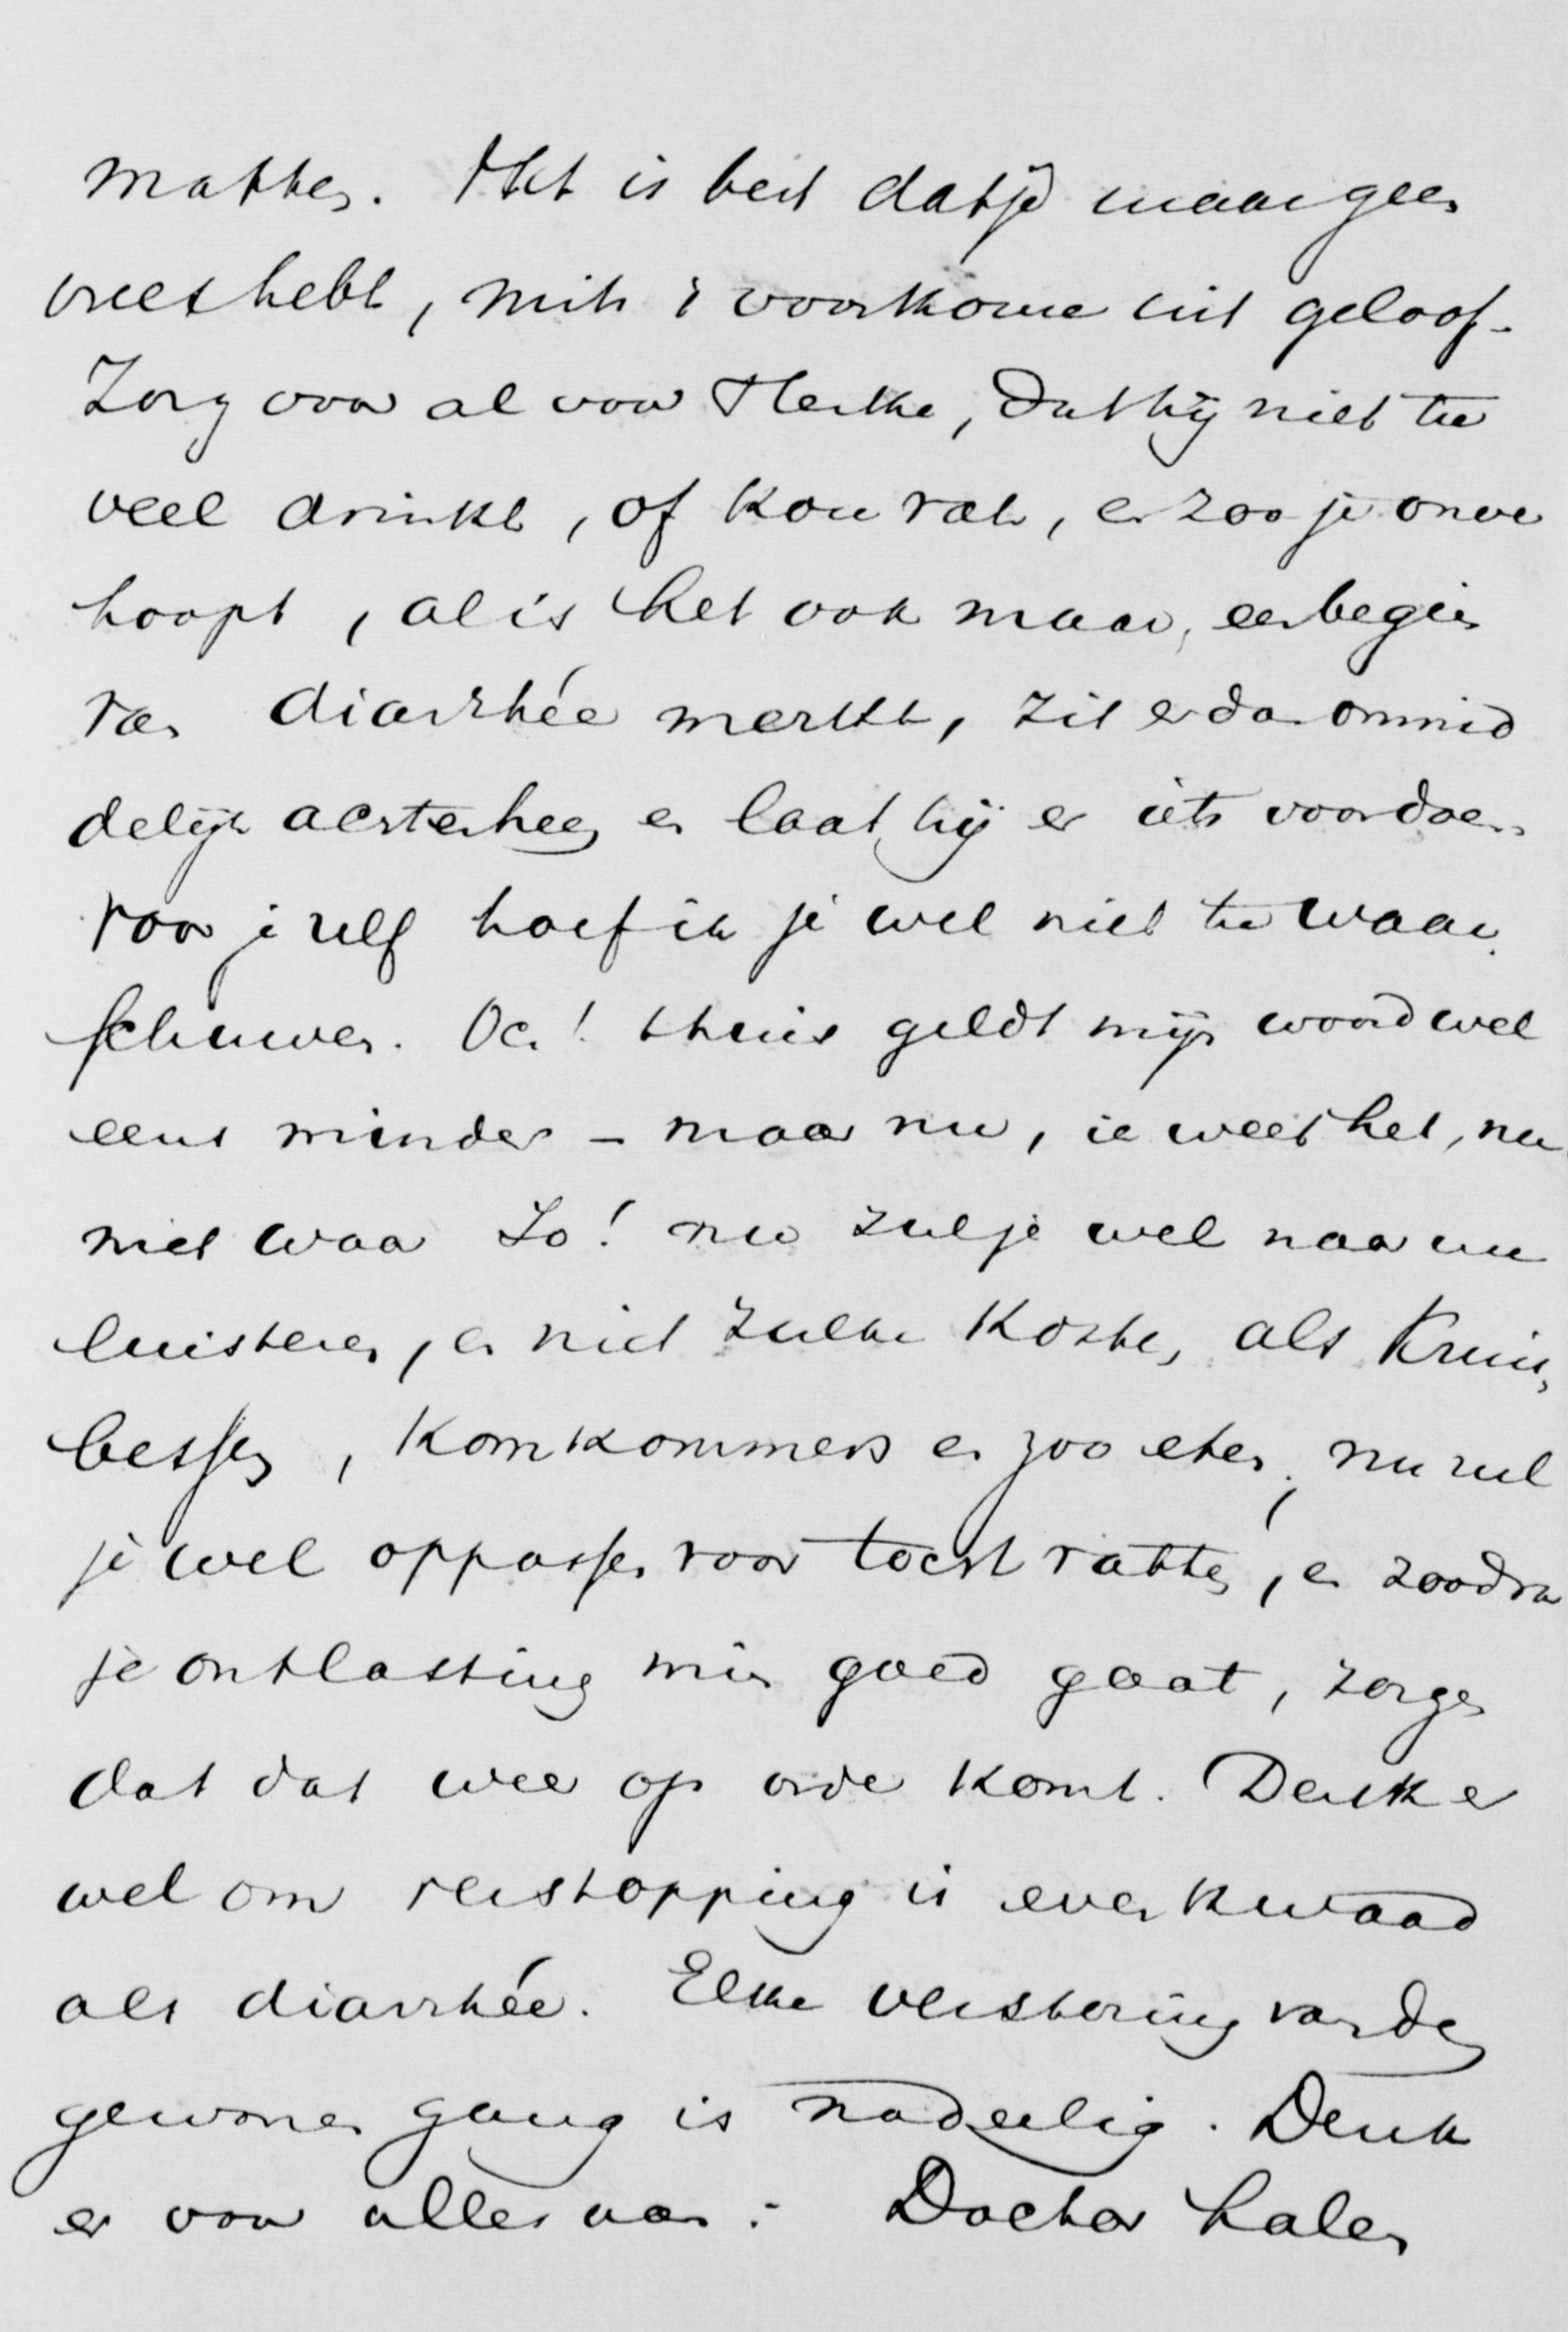 matten. Het is best dat je maar geen
vrees hebt, mits 't voortkome uit geloof.
Zorg voor al voor Henke, dat hij niet te
veel drinkt, of kou vat, en zoo je onver
hoopt, al is het ook maar, een begin
van diarrhée merkt, zit er dan onmid
delijk achterheen en laat hij er iets voor doen.
Voor je zelf hoef ik je wel niet te waar
schuwen. Och! thuis geldt mijn woord wel
eens minder – maar nu, je weet het, nu
niet waar Jo! nu zul je wel naar me
luisteren, en niet zulke kosten, als Kruis,
bessen, Komkommers en zoo eten; nu zul
je wel oppassen voor tocht vatten, en zoodra
je ontlasting min goed gaat, zorgen
dat dat weer op orde komt. Denk er
wel om verstopping is even kwaad
als diarrhée. Elke verstoring van den
gewonen gang is nadeelig. Denk
er voor alles aan: Dochter halen